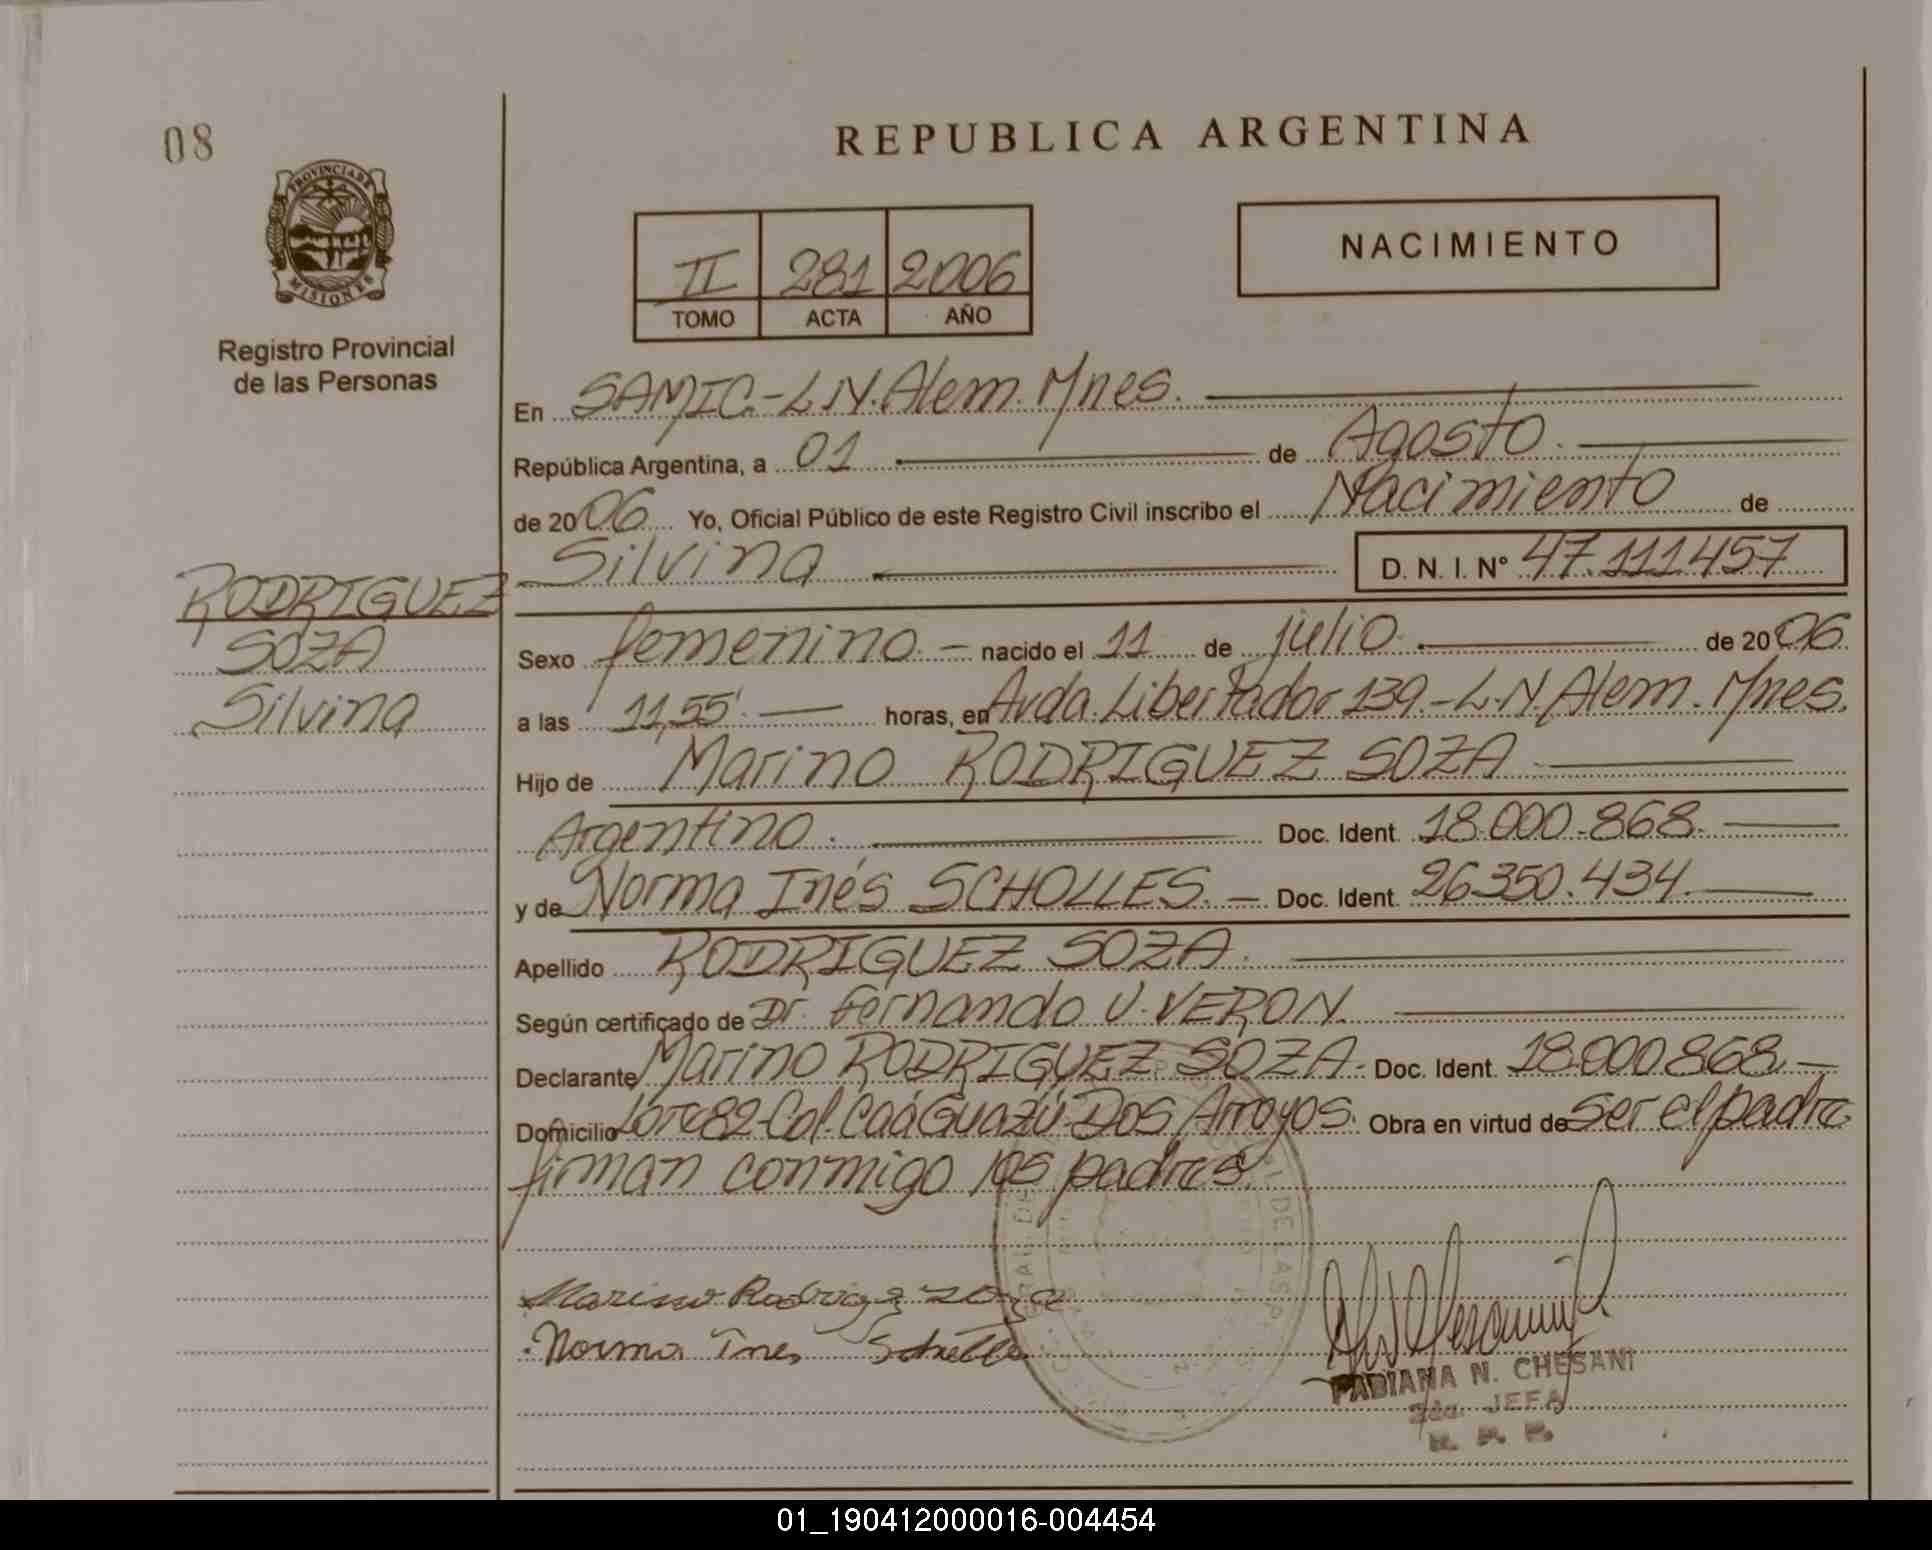 08
REPUBLICA ARGENTINA
PROVINCIA DE
MISIONES
Registro Provincial
de las Personas
II 281 2006
TOMO ACTA AÑO
NACIMIENTO
En SAMIC.-L.N.Alem. Mnes.
República Argentina, a 01 de Agosto.
de 2006 Yo, Oficial Público de este Registro Civil inscribo el Nacimiento de
Silvina D. N. I. Nº 47.111457
RODRIGUEZ
SOZA
Silvina
Sexo femenino. - nacido el 11 de julio. de 2006.
a las 11,55'. horas, en Avda. Libertador 139.-L.N.Alem. Mnes.
Hijo de Marino RODRIGUEZ SOZA
Argentino. Doc. Ident. 18.000.868.
y de Norma Inés SCHOLLES. - Doc. Ident. 26350.434.
Apellido RODRIGUEZ SOZA.
Según certificado de Dr. Fernando U. VERON.
Declarante Marino RODRIGUEZ SOZA- Doc. Ident. 18.000868.
Domicilio Lote 82-Col. Caá Guazú-Dos Arroyos. Obra en virtud de Ser el padre
firman conmigo los padres.
Norma Ines
FABIANA N. CHESANI
2da. JEFA
R. P. P.
01_190412000016-004454